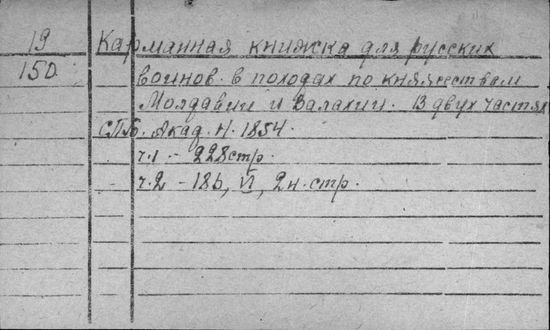 19
150
Карманная книжка для русских
воинов в походах по княжествам
Молдавии и Валахии. В двух частях
С.П.б. Акад. Н. 1854.
ч.1 - 228 стр.
ч.2 - 186, VI, 2 н. стр.